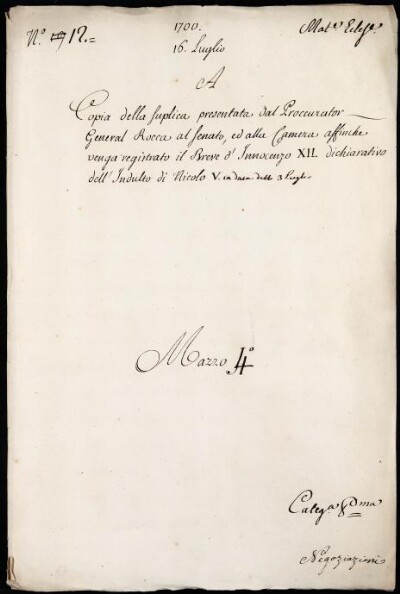 N.° 12.=
1700.
16. Luglio
Mat.ᵉ Eclesᵉ.
A
Copia della suplica presentata dal Proccurator
General Rocca al Senato, ed alla Camera affinche
venga registrato il Breve d' Innocenzo XII. dichiarativo
dell' Indulto di Nicolo V. in data delli 3 Luglio
Mazzo 4°
Categᵃ Pᵐᵃ
Negoziazioni